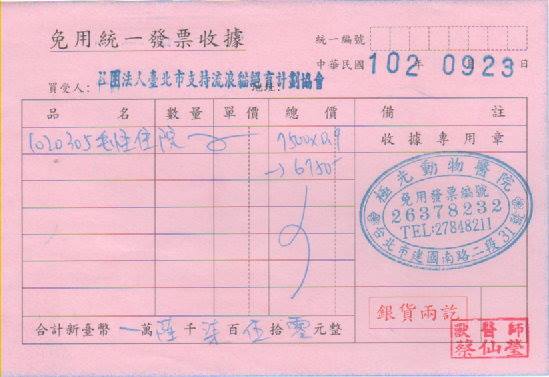 免用統一發票收據
統一編號
中華民國 102 年 09 23 日
買受人： 社團法人臺北市支持流浪貓絕育計劃協會
品名 數量 單價 總價 備註
1020305 住院 7500x0.9
→6750
收據專用章
極光動物醫院
免用發票編號
26378232
TEL:27848211
台北市建國南路二段31號
銀貨兩訖
獸醫師
蔡仙瑩
合計新臺幣 萬 陸 千 柒 百 伍 拾 零 元整